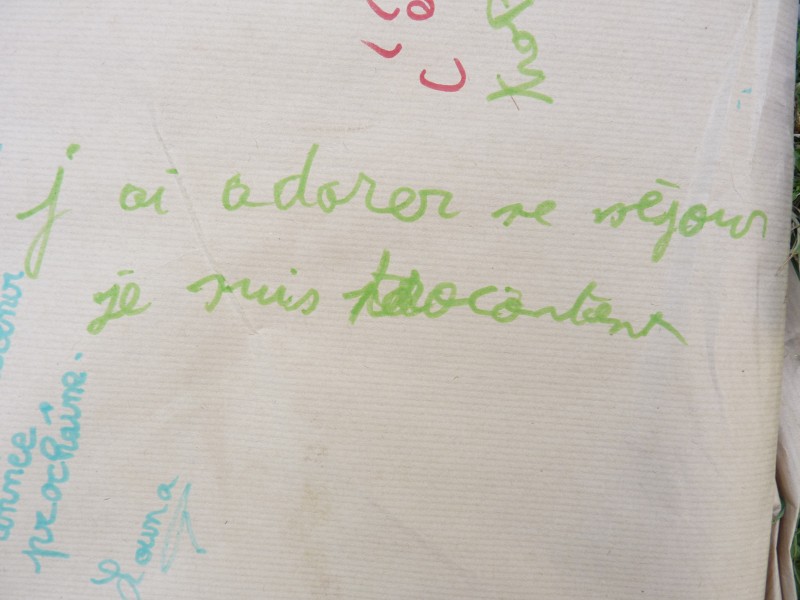 j'ai adorer se séjour
je suis tro content
année
prochaine.
Louna